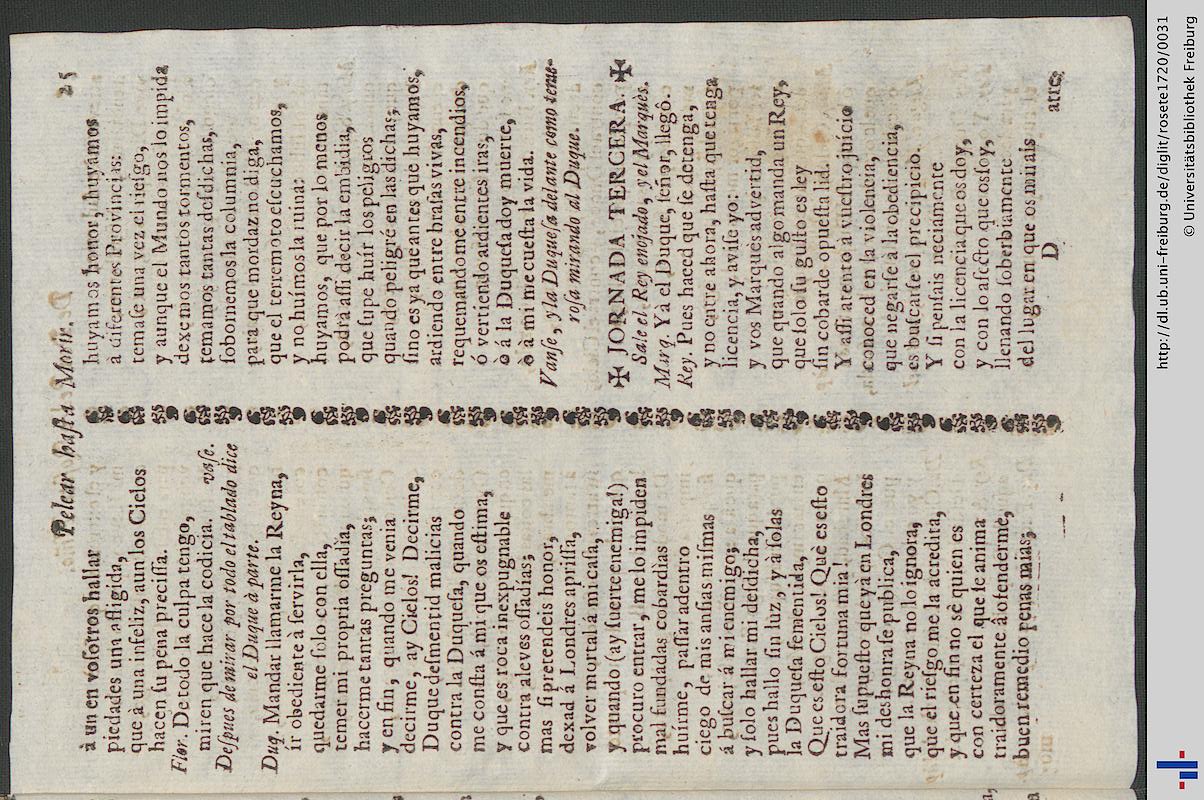 Pelear hasta Morir. 25
à un en vosotros hallar
piedades una afligida,
que à una infeliz, aun los Cielos
hacen su pena precissa.
Flor. De todo la culpa tengo,
miren que hace la codicia. vase.
Despues de mirar por todo el tablado dice
el Duque à parte.
Duq. Mandar llamarme la Reyna,
ir obediente à servirla,
quedarme solo con ella,
temer mi propria ossadìa,
hacerme tantas preguntas;
y en fin, quando me venia
decirme, ay Cielos! Decirme,
Duque desmentid malicias
contra la Duquesa, quando
me consta á mi que os estima,
y que es roca inexpugnable
contra aleves ossadìas;
mas si pretendeis honor,
dexad á Londres aprissa,
volver mortal á mi casa,
y quando (ay suerte enemiga!)
procuro entrar, me lo impiden
mal fundadas cobardìas
huirme, passar adentro
ciego de mis ansias mismas
á buscar á mi enemigo;
y solo hallar mi desdicha,
pues hallo sin luz, y à solas
la Duquesa fementida,
Que es esto Cielos! Que es esto
traidora fortuna mia!
Mas supuesto que ya en Londres
mi deshonra se publica,
que la Reyna no lo ignora,
que el riesgo me la acredita,
y que en fin no sè quien es
con certeza el que te anima
traidoramente à ofenderme,
buen remedio penas mias;
huyamos honor, huyamos
à diferentes Provincias:
temase una vez el riesgo,
y aunque el Mundo nos lo impida
dexemos tantos tormentos,
temamos tantas desdichas,
sobornemos la columnia,
para que mordaz no diga,
que el terremoto escuchamos,
y no huímos la ruina:
huyamos, que por lo menos
podrà assi decir la embidia,
que supe huír los peligros
quando peligré en las dichas;
sino es ya que antes que huyamos,
ardiendo entre brasas vivas,
requemandome entre incendios,
ó vertiendo ardientes iras,
ò á la Duquesa doy muerte,
ò á mi me cuesta la vida.
Vanse, y la Duquesa delante como teme-
rosa mirando al Duque.
✠ JORNADA TERCERA. ✠
Sale el Rey enojado, y el Marquès.
Marq. Yà el Duque, señor, llegô.
Rey. Pues haced que se detenga,
y no entre ahora, hasta que tenga
licencia, y avise yo:
y vos Marques advertid,
que quando algo manda un Rey,
que solo su gusto es ley
sin cobarde opuesta lid.
Y assi atento á vuestro juício
conoced en la violencia,
que negarse à la obediencia,
es buscarse el precipicio.
Y si pensais neciamente
con la licencia que os doy,
y con lo afecto que os soy,
llenando soberbiamente
del lugar en que os mirais
D atre;
http://dl.ub.uni-freiburg.de/diglit/rosete1720/0031
© Universitätsbibliothek Freiburg